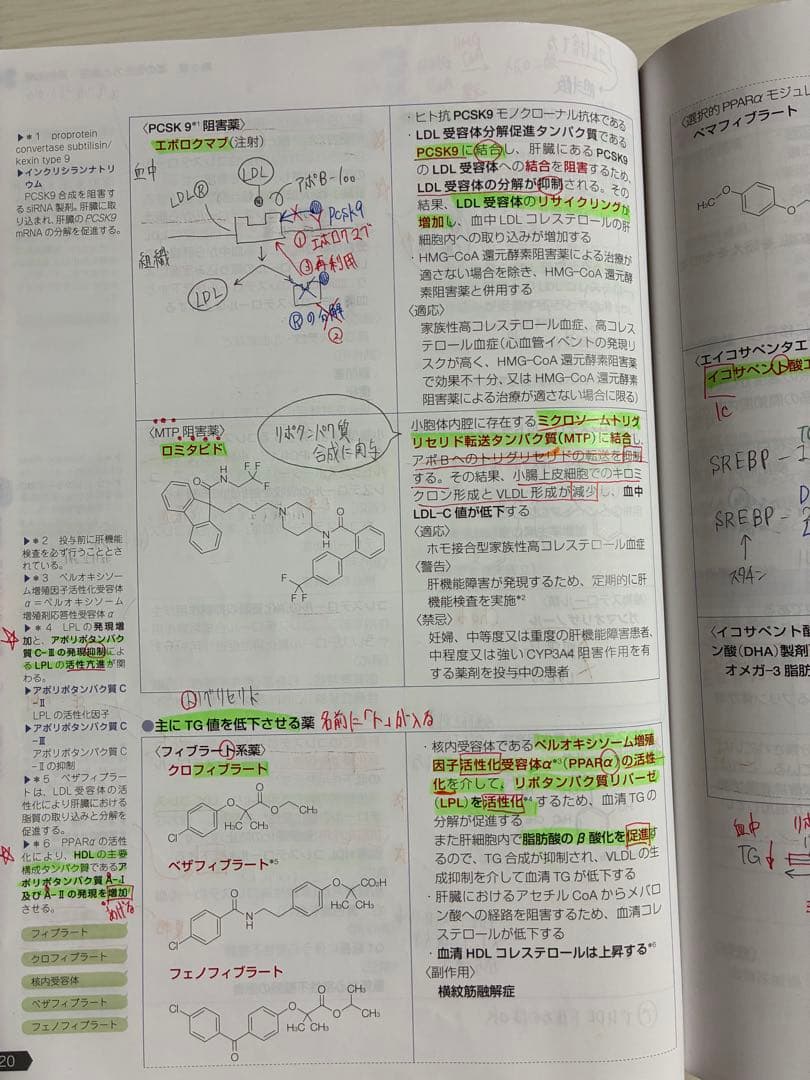 ▶＊1 proprotein
convertase subtilisin/
kexin type 9
▶インクリシランナトリ
ウム
PCSK9 合成を阻害す
る siRNA 製剤。肝臓に取
り込まれ、肝臓の PCSK9
mRNA の分解を促進する。
〈PCSK 9*1 阻害薬〉
エボロクマブ(注射)
血中
LDL
LDLⓇ
アポB-100
PCSK9
①エボロクマブ
③再利用
組織
LDL
Ⓡの分解
②
・ヒト抗 PCSK9 モノクローナル抗体である
・LDL 受容体分解促進タンパク質である
PCSK9 に結合し、肝臓にある PCSK9
の LDL 受容体への結合を阻害するため、
LDL 受容体の分解が抑制される。その
結果、LDL 受容体のリサイクリングが
増加し、血中 LDL コレステロールの肝
細胞内への取り込みが増加する
・HMG-CoA 還元酵素阻害薬による治療が
適さない場合を除き、HMG-CoA 還元酵
素阻害薬と併用する
〈適応〉
家族性高コレステロール血症、高コレス
テロール血症(心血管イベントの発現リ
スクが高く、HMG-CoA 還元酵素阻害薬
で効果不十分、又は HMG-CoA 還元酵素
阻害薬による治療が適さない場合に限る)
〈MTP 阻害薬〉
ロミタピド
リポタンパク質
合成に関与
小胞体内腔に存在するミクロソームトリグ
リセリド転送タンパク質(MTP)に結合し、
アポ B へのトリグリセリドの転送を抑制
する。その結果、小腸上皮細胞でのキロミ
クロン形成と VLDL 形成が減少し、血中
LDL-C 値が低下する
〈適応〉
ホモ接合型家族性高コレステロール血症
〈警告〉
肝機能障害が発現するため、定期的に肝
機能検査を実施*2
〈禁忌〉
妊婦、中等度又は重度の肝機能障害患者、
中程度又は強い CYP3A4 阻害作用を有
する薬剤を投与中の患者
▶＊2 投与前に肝機能
検査を必ず行うこととさ
れている。
▶＊3 ペルオキシソー
ム増殖因子活性化受容体
α＝ペルオキシソーム
増殖剤応答性受容体 α
▶＊4 LPL の発現増
加と、アポリポタンパク
質 C-Ⅲの発現抑制によ
る LPL の活性亢進が関
わる。
▶アポリポタンパク質 C
-Ⅱ
LPL の活性化因子
▶アポリポタンパク質 C
-Ⅲ
アポリポタンパク質 C
-Ⅱの抑制
▶＊5 ベザフィブラー
トは、LDL 受容体の活
性化により肝臓における
脂質の取り込みと分解を
促進する。
▶＊6 PPARα の活性
化により、HDL の主要
構成タンパク質であるア
ポリポタンパク質 A-Ⅰ
及び A-Ⅱの発現を増加
させる。
あげる
フィブラート
クロフィブラート
核内受容体
ベザフィブラート
フェノフィブラート
20
トリグリセリド
●主に TG 値を低下させる薬 名前に「ト」が入る
〈フィブラート系薬〉
クロフィブラート
ベザフィブラート*5
フェノフィブラート
・核内受容体であるペルオキシソーム増殖
因子活性化受容体α*3(PPARα)の活性
化を介して、リポタンパク質リパーゼ
(LPL)を活性化*4するため、血清 TG の
分解が促進する
また肝細胞内で脂肪酸の β 酸化を促進す
るので、TG 合成が抑制され、VLDL の生
成抑制を介して血清 TG が低下する
・肝臓におけるアセチル CoA からメバロ
ン酸への経路を阻害するため、血清コレ
ステロールが低下する
・血清 HDL コレステロールは上昇する*6
〈副作用〉
横紋筋融解症
〈選択的 PPARα モジュレ
ペマフィブラート
〈エイコサペンタエ
イコサペント酸エ
SREBP-1c
SREBP-2
↑
スタチン
〈イコサペント酸
ン酸(DHA)製剤
オメガ-3 脂肪
血中
TG↓